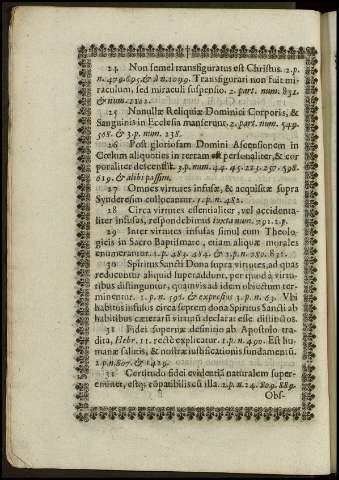 24 Non semel transfiguratus est Christus. 2. p.
n. 479. 695. & à n. 1099. Transfigurari non fuit mi-
raculum, sed miraculi suspensio. 2. part. num. 831.
& num. 1101.
25 Nonullæ Reliquiæ Dominici Corporis, &
Sanguinis in Ecclesia manserunt. 2. part. num. 549.
568. & 3. p. num. 238.
26 Post gloriosam Domini Ascensionem in
Cœlum aliquoties in terram est personaliter, & cor
poraliter descensit. 3. p. num. 44. 45. 223. 257. 598.
619. & alibi passim.
27 Omnes virtutes infusæ, & acquisitæ supra
Synderesim collocantur. 1. p. n. 482.
28 Circa virtutes essentialiter, vel accidenta-
liter infusas, respondebimus iuxta num. 791. 2. p.
29 Inter virtutes infusas simul cum Theolo-
gicis in Sacro Baptismate, etiam aliquæ morales
enumerantur. 1. p. 483. 484. & 2. p. n. 280. 832.
30 Spiritus Sancti Dona supra virtutes, ad quas
reducuntur aliquid superaddunt, per quod à virtu-
tibus distinguntur, quamvis ad idem obiectum ter-
minentur. 1. p. n. 596. & expressius 3. p. n. 63. Vbi
habitus infusos circa septem dona Spiritus Sancti ab
habitibus cæterarū virtutū declarat esse distinctos.
31 Fidei supernæ definitio ab Apostolo tra-
dita, Hebr. 11. rectè explicatur. 1. p. n. 490. Est hu-
manæ salutis, & nostræ iustificationis fundamentū.
2. p. n. 807. & 1429.
32 Certitudo fidei evidentiā naturalem super-
eminet, estq; cōpatibilis cū illa. 2. p. n. 24. 809. 889.
Obs-